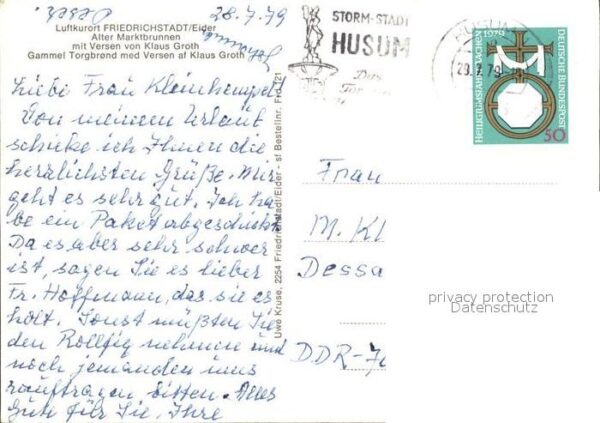 Luftkurort FRIEDRICHSTADT/Eider
Alter Marktbrunnen
mit Versen von Klaus Groth
Gammel Torgbrønd med Versen af Klaus Groth
28.7.79
Liebe Frau Kleinhempel
Von meinem Urlaub
schicke ich Ihnen die
herzlichsten Grüße. Mir
geht es sehr gut. Ich ha
be ein Paket abgeschickt
Da es aber sehr schwer
ist, sagen Sie es lieber
Fr. Hoffmann, das sie es
holt. Sonst müßten Sie
den Rollfix nehmen und
noch jemanden
rauftragen bitten. Alles
Gute für Sie, Ihre
Uwe Kruse, 2254 Friedrichstadt/Eider - st Bestellnr. Frd 121
STORM-STADT
HUSUM
HUSUM
29.7.79
HEILIGTUMSFAHRT AACHEN 1979
DEUTSCHE BUNDESPOST
50
Frau
M. Kl
Dessa
DDR-7
privacy protection
Datenschutz